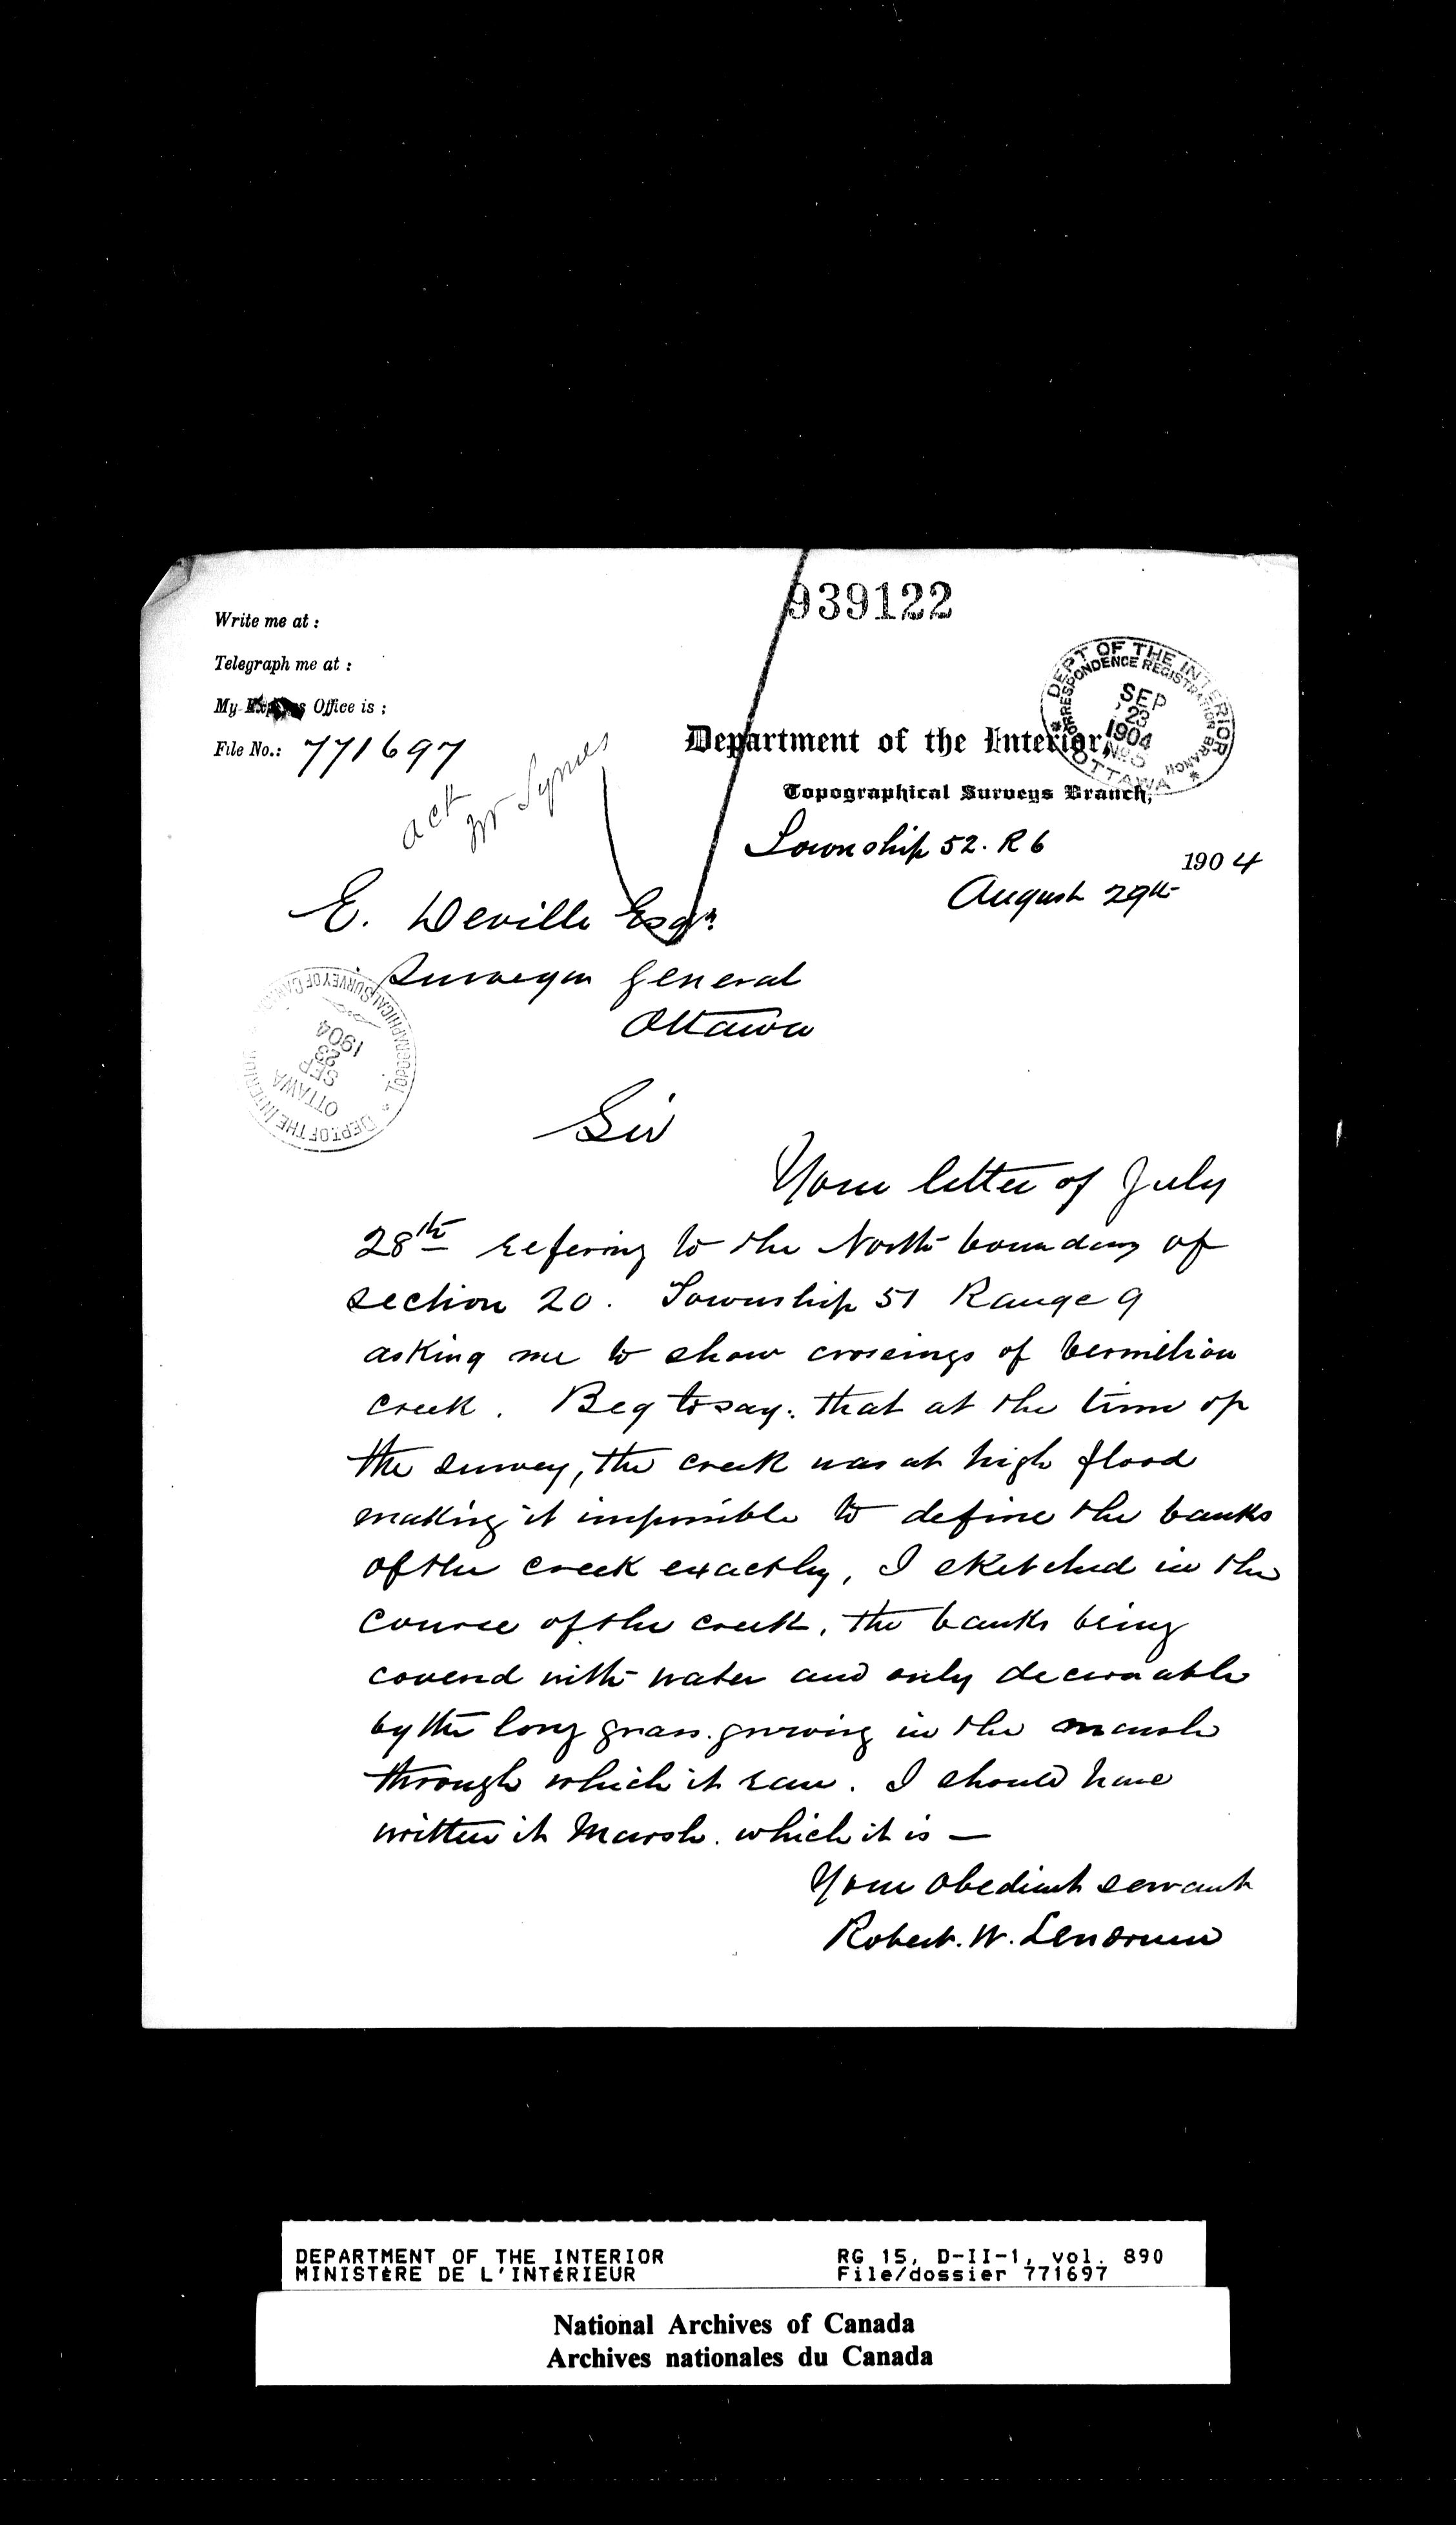 939122
Write me at :
Telegraph me at :
My Express Office is ;
File No.: 771697
ack
Mr Symes
DEPT OF THE INTERIOR
CORRESPONDENCE REGISTRATION BRANCH
SEP
23
1904
No 5
OTTAWA
Department of the Interior,
Topographical Surveys Branch,
Township 52. R 6
1904
August 29th
E. Deville Esqr.
Surveyor General
Ottawa
TOPOGRAPHICAL SURVEY OF CANADA
DEPT. OF THE INTERIOR
OTTAWA
SEP
23
1904
Sir
Your letter of July
28th refering to the North boundary of
section 20. Township 51 Range 9
asking me to show crossings of Vermilion
creek. Beg to say. that at the time of
the survey, the creek was at high flood
making it impossible to define the banks
of the creek exactly, I sketched in the
course of the creek, the banks being
covered with water and only decernable
by the long grass growing in the marsh
through which it ran. I should have
written it Marsh. which it is —
Your obedient servant
Robert. W. Lendrum
DEPARTMENT OF THE INTERIOR RG 15, D-II-1, vol. 890
MINISTÈRE DE L'INTÉRIEUR File/dossier 771697
National Archives of Canada
Archives nationales du Canada